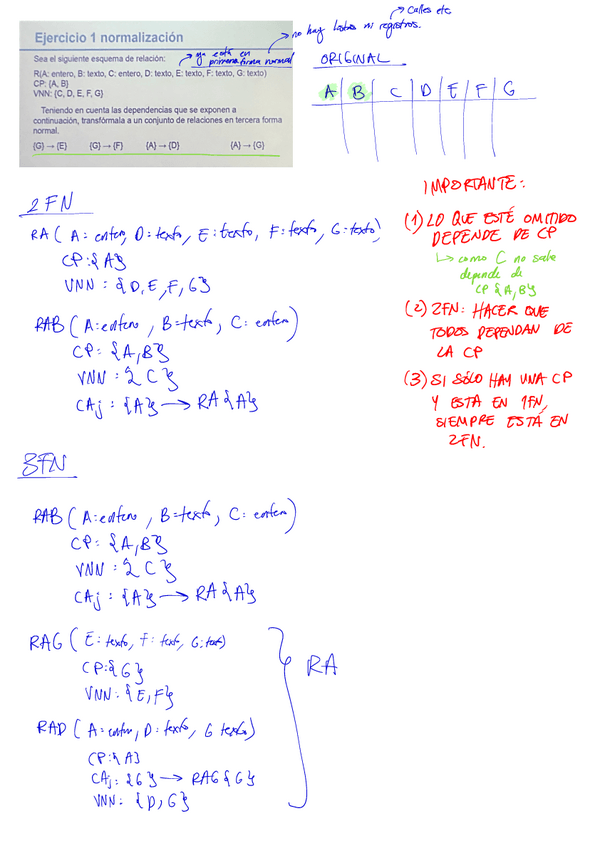 → Calles etc
→ no hay listas ni registros.
Ejercicio 1 normalización
Sea el siguiente esquema de relación:
→ ya está en
primera forma normal
R(A: entero, B: texto, C: entero, D: texto, E: texto, F: texto, G: texto)
CP: {A, B}
VNN: {C, D, E, F, G}
Teniendo en cuenta las dependencias que se exponen a
continuación, transfórmala a un conjunto de relaciones en tercera forma
normal.
{G} → {E} {G} → {F} {A} → {D} {A} → {G}
ORIGINAL
A B C D E F G
2FN
RA ( A: entero, D: texto, E: texto, F: texto, G: texto)
CP: {A}
VNN: {D, E, F, G}
RAB ( A: entero, B: texto, C: entero)
CP: {A, B}
VNN: {C}
CAj: {A} → RA {A}
IMPORTANTE:
(1) LO QUE ESTÉ OMITIDO
DEPENDE DE CP
↳ como C no sale
depende de
CP {A, B}
(2) 2FN: HACER QUE
TODOS DEPENDAN DE
LA CP
(3) SI SÓLO HAY UNA CP
Y ESTA EN 1FN,
SIEMPRE ESTÁ EN
2FN.
3FN
RAB ( A: entero, B: texto, C: entero)
CP: {A, B}
VNN: {C}
CAj: {A} → RA {A}
RAG ( E: texto, F: text, G: text)
CP: {G}
VNN: {E, F}
RA
RAD ( A: entero, D: texto, G texto)
CP: {A}
CAj: {G} → RAG {G}
VNN: {D, G}